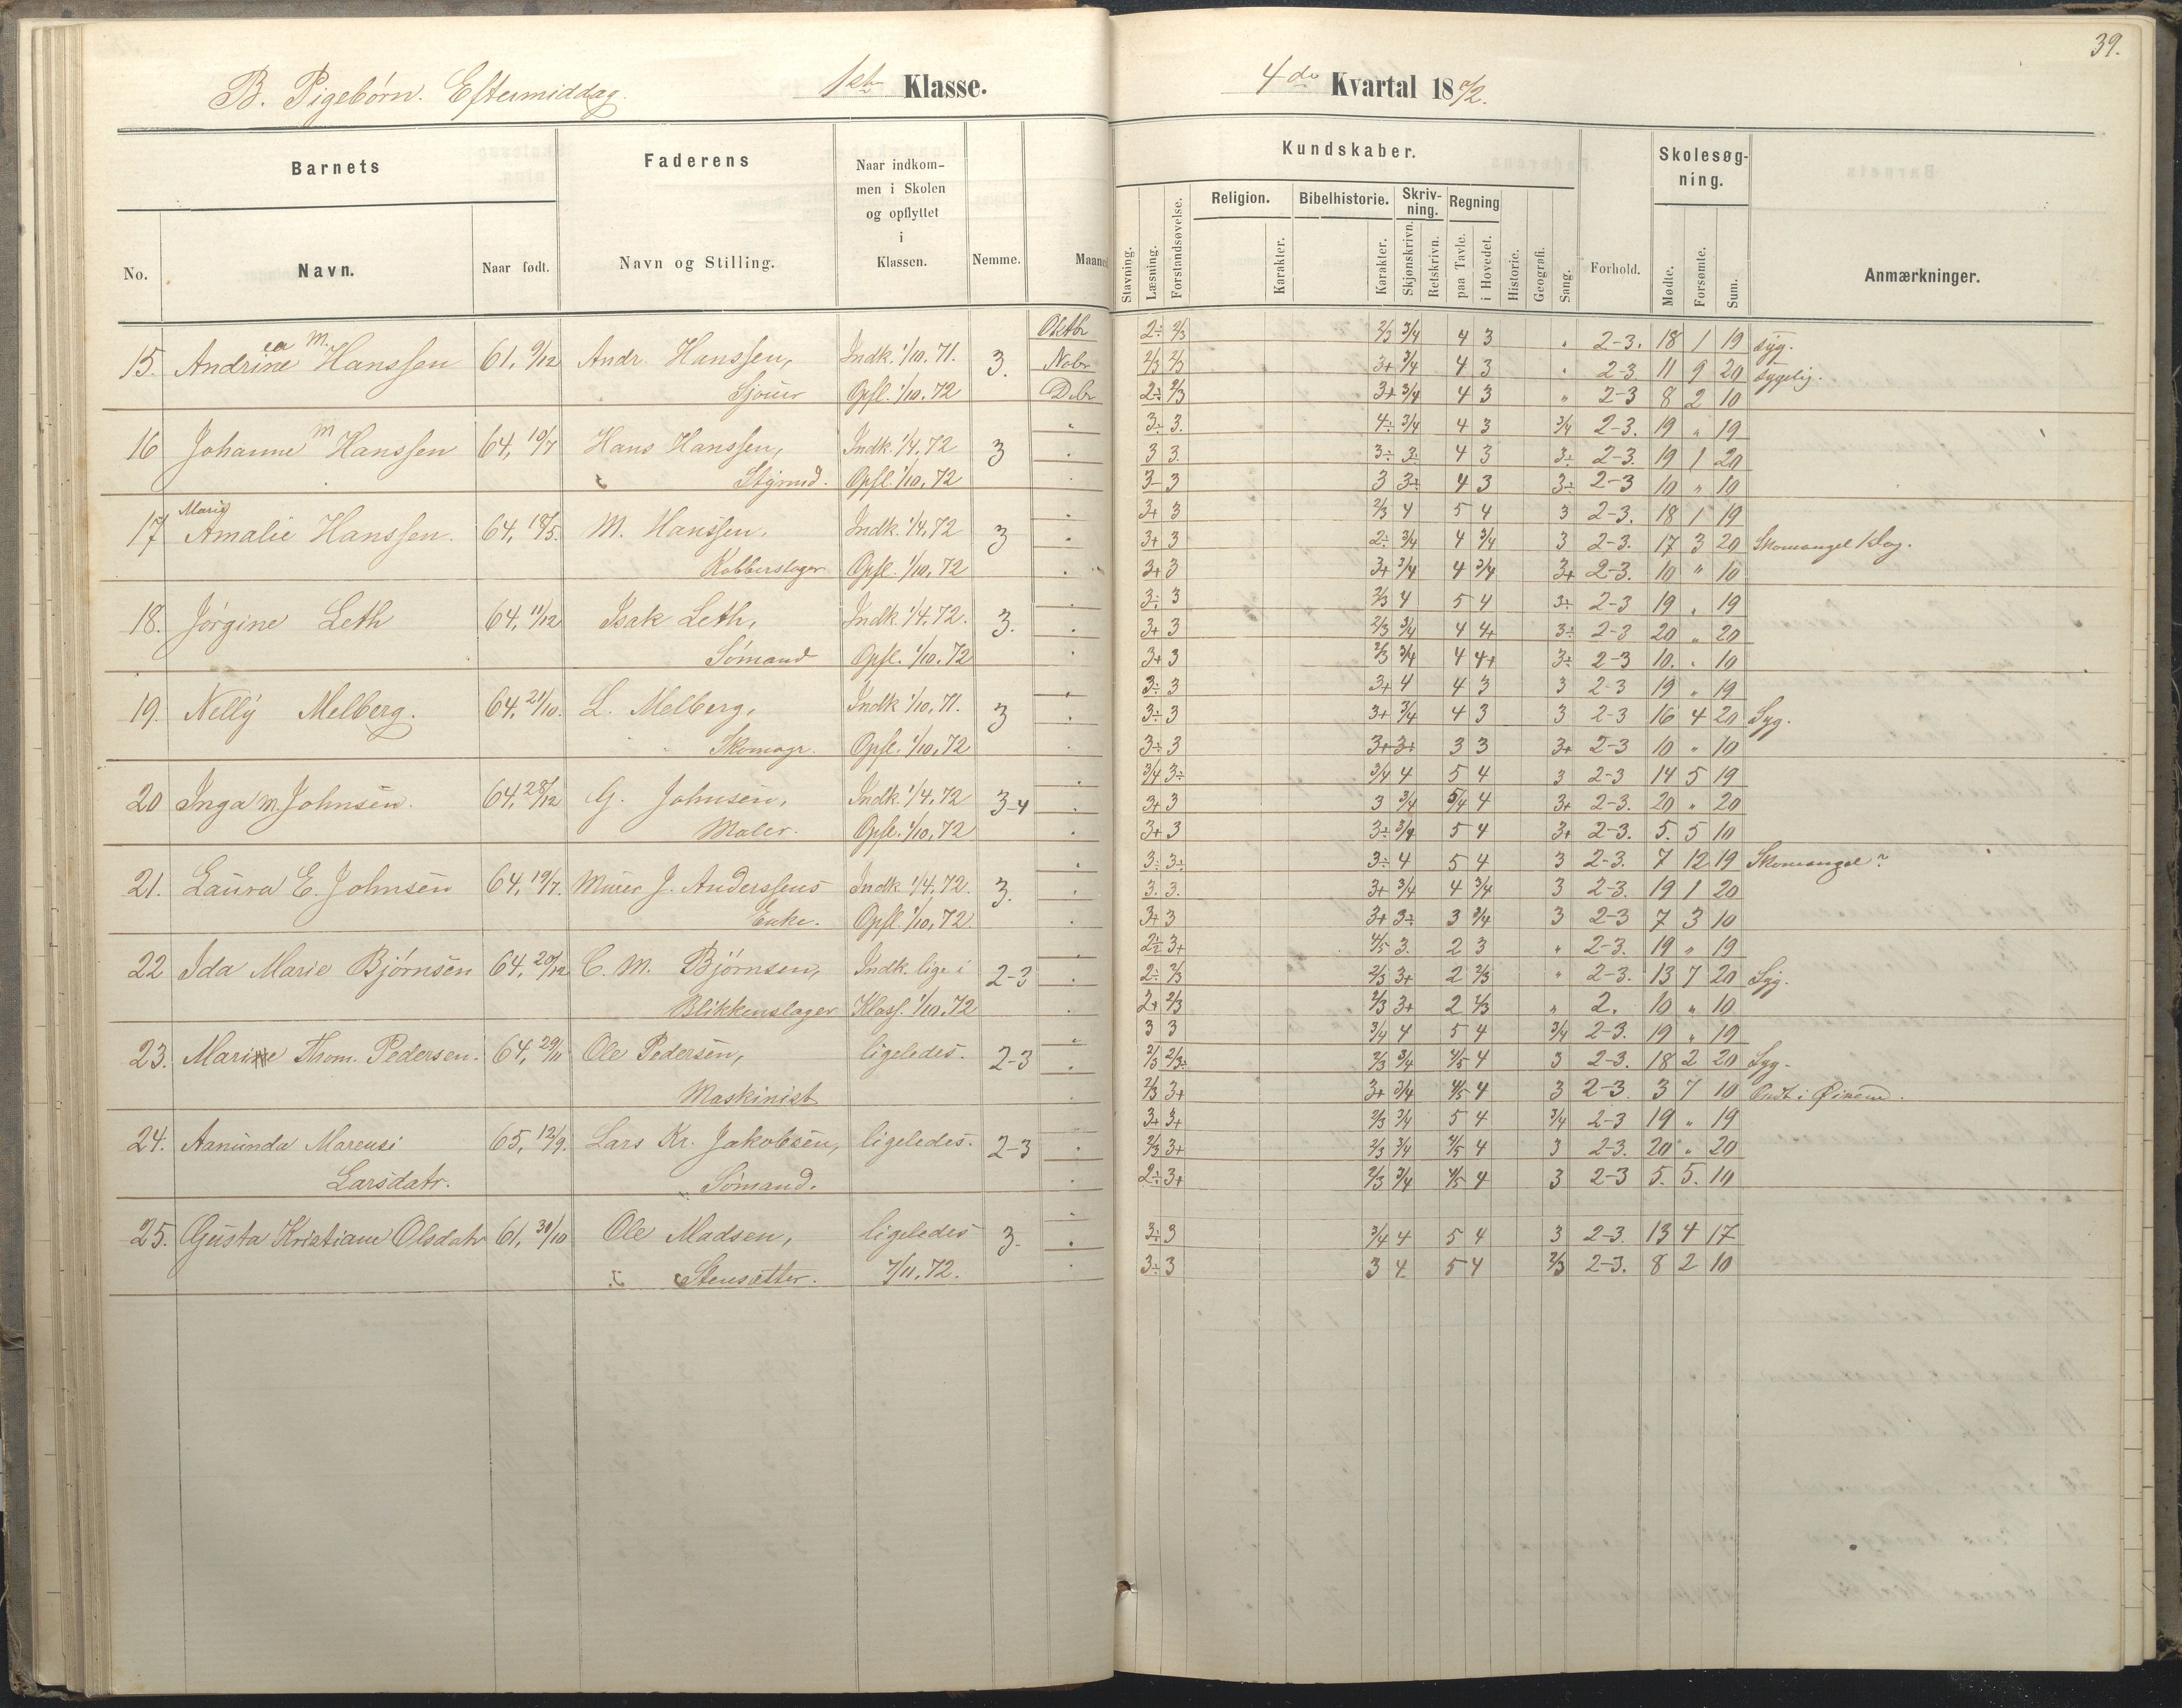 39.
B. Pigebørn. Eftermiddag. 1ste Klasse. 4de Kvartal 1872.
Barnets Faderens Naar indkommen i Skolen og opflyttet i Klassen. Nemme. Maaned
No. Navn. Naar født. Navn og Stilling.
Kundskaber. Skolesøgning.
Stavning. Læsning. Forstandsøvelse. Religion. Karakter. Bibelhistorie. Karakter. Skrivning. Skjønskrivn. Retskrivn. Regning paa Tavle. i Hovedet. Historie. Geografi. Sang. Forhold. Mødte. Forsømte. Sum. Anmærkninger.
Oktbr 2÷ 2/3 2/3 3/4 4 3 " 2-3. 18 1 19 syg.
15. Andrine ea M. Hanssen 61, 9/12 Andr. Hanssen, Indk. 1/10. 71. 3. Nobr 2/3 2/3 3+ 3/4 4 3 " 2-3 11 9 20 sygelig.
Sjouer Opfl. 1/10. 72 Dcbr 2÷ 2/3 3+ 3/4 4 3 " 2-3 8 2 10
3÷ 3. 4÷ 3/4 4 3 3/4 2-3. 19 " 19
16 Johanne M Hanssen 64, 10/7 Hans Hanssen, Indk. 1/4. 72 3 3 3. 3÷ 3÷ 4 3 3÷ 2-3. 19 1 20
Styrmd. Opfl. 1/10. 72 3- 3 3 3÷ 4 3 3÷ 2-3 10 " 10
Marie 3+ 3 2/3 4 5 4 3 2-3. 18 1 19
17 Amalie Hanssen. 64, 18/5. M. Hanssen, Indk. 1/4. 72 3 3+ 3 2÷ 3/4 4 3/4 3 2-3. 17 3 20 Skomangel
Kobberslager Opfl. 1/10. 72 3+ 3 3+ 3/4 4 3/4 3+ 2-3. 10 " 10
3÷ 3 2/3 4 5 4 3÷ 2-3 19 " 19
18. Jørgine Leth 64, 11/12 Isak Leth, Indk. 1/4. 72. 3. 3+ 3 2/3 3/4 4 4+ 3÷ 2-3 20 " 20
Sømand Opfl. 1/10. 72 3+ 3 2/3 3/4 4 4+ 3÷ 2-3 10. " 10
3÷ 3 3+ 4 4 3 3 2-3 19 " 19
19. Nelly Melberg. 64, 21/10. L. Melberg, Indk 1/10. 71. 3 3÷ 3 3+ 3/4 4 3 3 2-3 16 4 20 Syg.
Skomagr. Opfl. 1/10. 72 3÷ 3 3+ 3+ 3 3 3+ 2-3 10 " 10
3/4 3÷ 3/4 4 5 4 3 2-3 14 5 19
20 Inga M. Johnsen. 64, 28/12 G. Johnsen, Indk. 1/4. 72 3-4 3+ 3 3 3/4 5/4 4 3+ 2-3. 20 " 20
Maler. Opfl. 1/10. 72 3+ 3 3÷ 3/4 5 4 3+ 2-3. 5. 5 10
3÷ 3÷ 3÷ 4 5 4 3 2-3. 7 12 19 Skomangel?
21. Laura E. Johnsen 64, 19/7. Murer J. Anderssens Indk. 1/4. 72. 3. 3. 3. 3+ 3/4 4 3/4 3 2-3. 19 1 20
Enke. Opfl. 1/10. 72. 3+ 3 3+ 3÷ 3 3/4 3 2-3 7 3 10
2÷ 3+ 4/5 3. 2 3 " 2-3. 19 " 19
22 Ida Marie Bjørnsen 64, 20/12 C. M. Bjørnsen, Indk. lige i 2-3 2÷ 2/3 2/3 3+ 2 2/3 " 2-3. 13 7 20 Syg.
Blikkenslager Klass. 1/10. 72 2+ 2/3 2/3 3+ 2 2/3 " 2. 10 " 10
3 3 3/4 4 5 4 3/4 2-3. 19 " 19
23. Marine Thom. Pedersen. 64, 29/11 Ole Pedersen, ligeledes. 2-3 2/3 2/3÷ 2/3 3/4 4/5 4 3 2-3. 18 2 20 Syg.
Maskinist 2/3 3+ 3+ 3/4 4/5 4 3 2-3. 3 7 10 Ondt i Øinene.
3+ 3+ 2/3 3/4 5 4 3/4 2-3 19 " 19
24. Aanunda Marensi 65, 12/9. Lars Kr. Jakobsen, ligeledes. 2-3 2/3 3+ 2/3 3/4 4/5 4 3 2-3. 20 " 20
Larsdatr. Sømand. 2÷ 3+ 2/3 3/4 4/5 4 3 2-3 5. 5. 10
25. Gusta Kristiane Olsdatr 61, 30/10 Ole Madsen, ligeledes 3. 3÷ 3 3/4 4 5 4 3 2-3. 13 4 17
Stensætter. 7/11. 72. 3÷ 3 3 4 5 4 2/3 2-3. 8 2 10